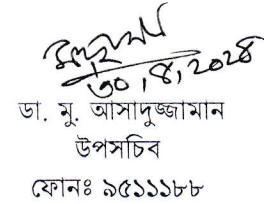 ৩০,৪,২০২৪
ডা. মু. আসাদুজ্জামান
উপসচিব
ফোনঃ ৯৫১১১৮৮